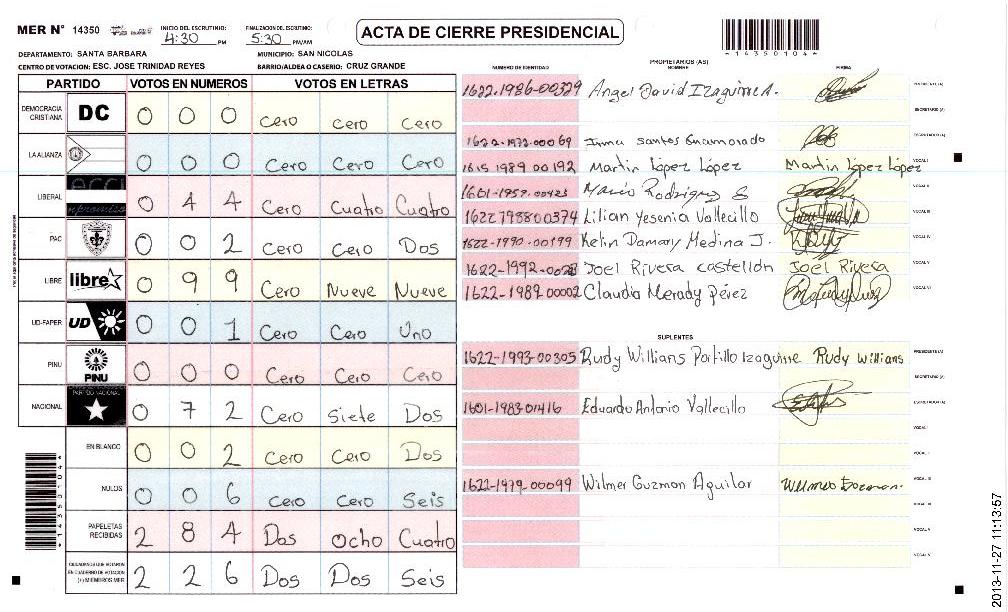 MER N° 14350
INICIO DEL ESCRUTINIO: 4:30 PM
FINALIZACION DEL ESCRUTINIO: 5:30 PM/AM
ACTA DE CIERRE PRESIDENCIAL
*14350104*
DEPARTAMENTO: SANTA BARBARA
MUNICIPIO: SAN NICOLAS
CENTRO DE VOTACION: ESC. JOSE TRINIDAD REYES
BARRIO/ALDEA O CASERIO: CRUZ GRANDE
PARTIDO VOTOS EN NUMEROS VOTOS EN LETRAS
DEMOCRACIA CRISTIANA DC 0 0 0 Cero Cero Cero
LA ALIANZA 0 0 0 Cero Cero Cero
LIBERAL 0 4 4 Cero Cuatro Cuatro
PAC 0 0 2 Cero Cero Dos
LIBRE libre 0 9 9 Cero Nueve Nueve
UD-FAPER UD 0 0 1 Cero Cero Uno
PINU PINU 0 0 0 Cero Cero Cero
NACIONAL PARTIDO NACIONAL 0 7 2 Cero Siete Dos
EN BLANCO 0 0 2 Cero Cero Dos
NULOS 0 0 6 Cero Cero Seis
PAPELETAS RECIBIDAS 2 8 4 Dos Ocho Cuatro
CIUDADANOS QUE VOTARON EN CUADERNO DE VOTACION (+) MIEMBROS MER 2 2 6 Dos Dos Seis
*14350104*
PROPIETARIOS (AS)
NUMERO DE IDENTIDAD NOMBRE FIRMA
1622-1986-00329 Angel David Izaguirre A. PRESIDENTE (A)
SECRETARIO (A)
1622-1972-00069 Irma Santos Enamorado ESCRUTADOR (A)
1615 1989 00192 Martin López López Martin López López VOCAL I
1601-1959-00423 Mario Rodriguez S VOCAL II
1622 198800374 Lilian Yesenia Vallecillo VOCAL III
1622-1990-00199 Kelin Damary Medina J. VOCAL IV
1622-1992- Joel Rivera castellón Joel Rivera VOCAL V
1622-1989 00002 Claudia Merady Pérez VOCAL VI
SUPLENTES
1622-1993-00305 Rudy Willians Portillo Izaguirre Rudy Willians PRESIDENTE (A)
SECRETARIO (A)
1601-1983-01416 Eduardo Antonio Vallecillo ESCRUTADOR (A)
VOCAL I
VOCAL II
1622-1979-00099 Wilmer Guzman Aguilar VOCAL III
VOCAL IV
VOCAL V
VOCAL VI
2013-11-27 11:13:57